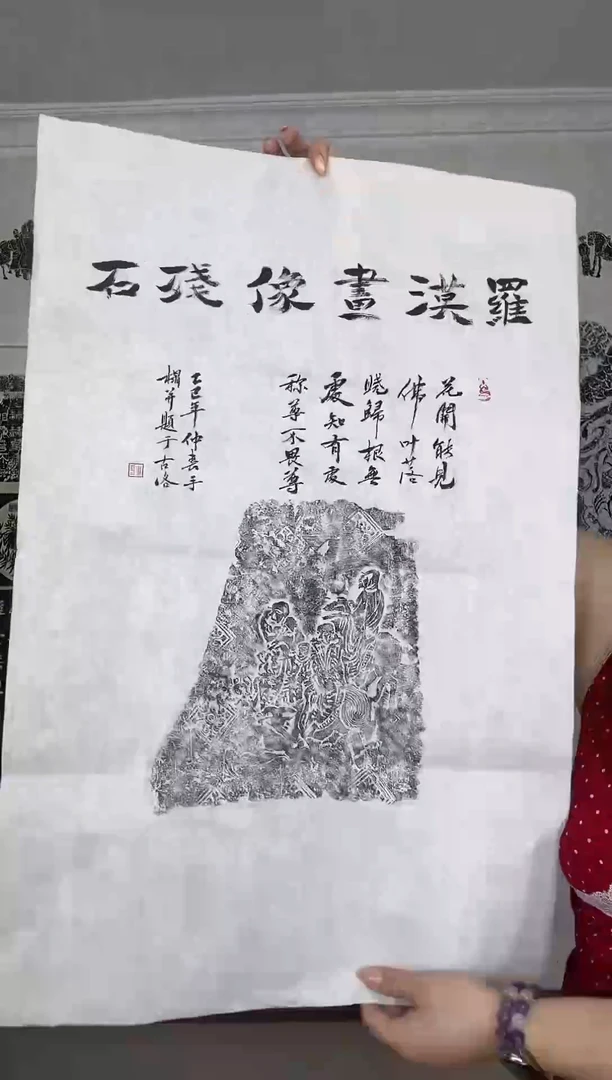 羅漢畫像殘石
花開能見
佛叶落
曉歸根無
處知有度
称尊不畏尊
乙巳年仲春于
榻并題于古洛